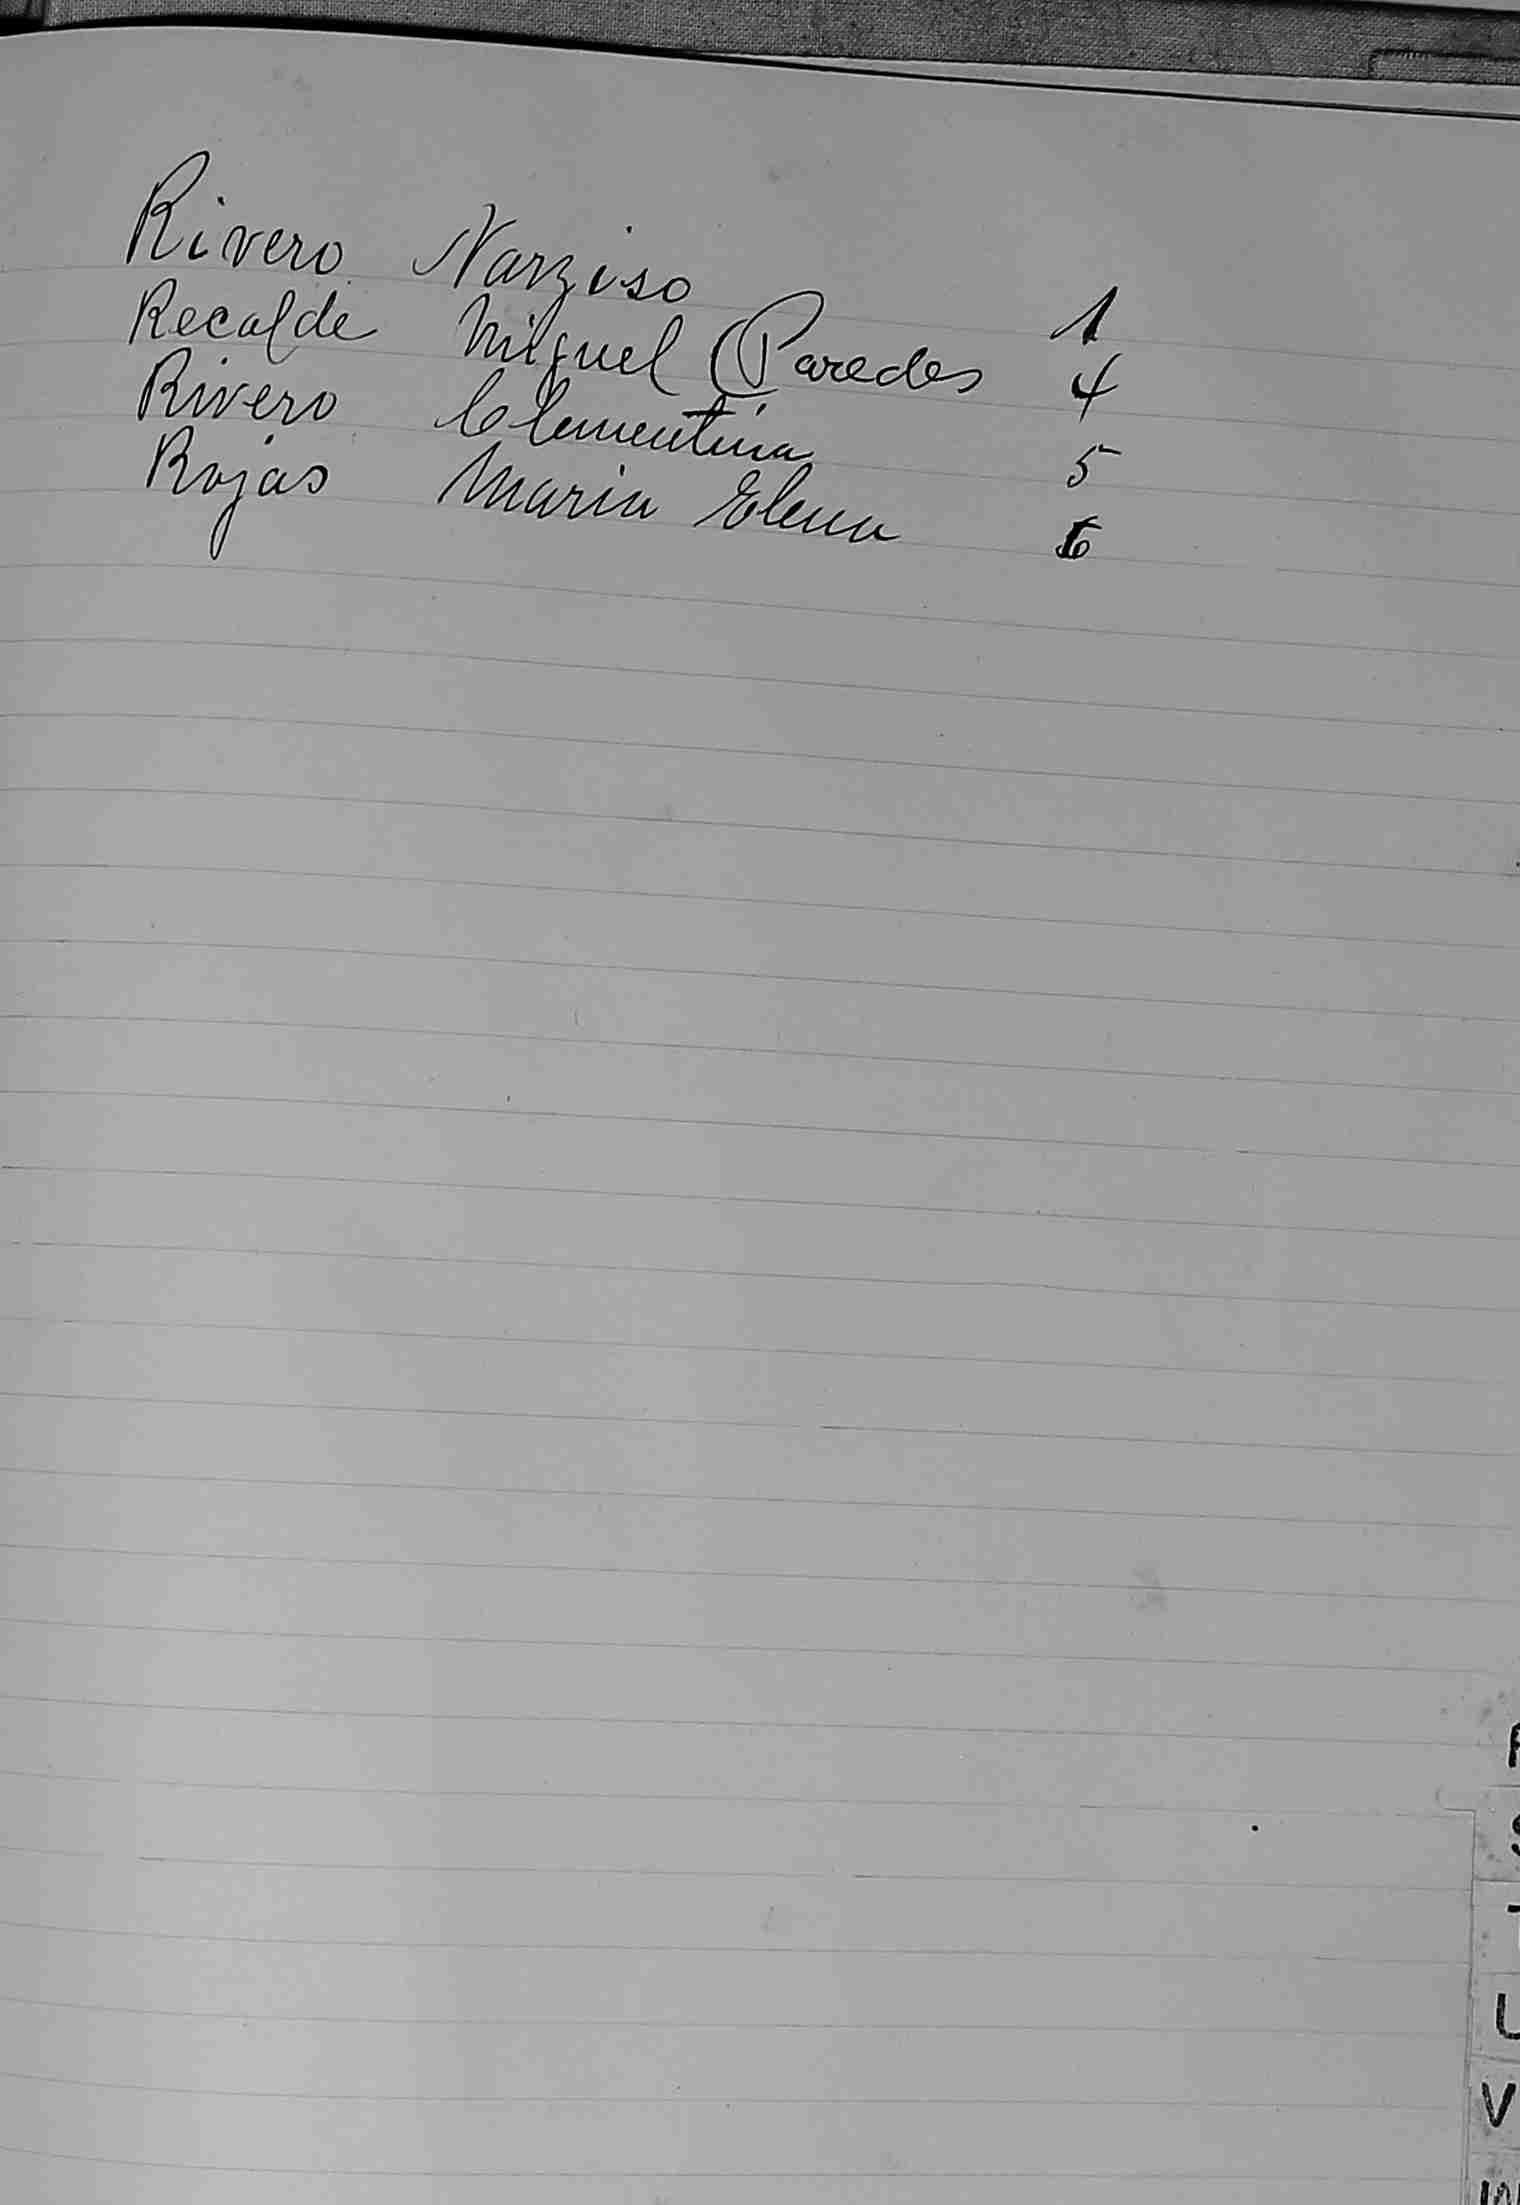 Rivero Narziso 1
Recalde Miguel (Paredes 4
Rivero Clementina 5
Rojas Maria Elena 6
R
S
T
U
V
W